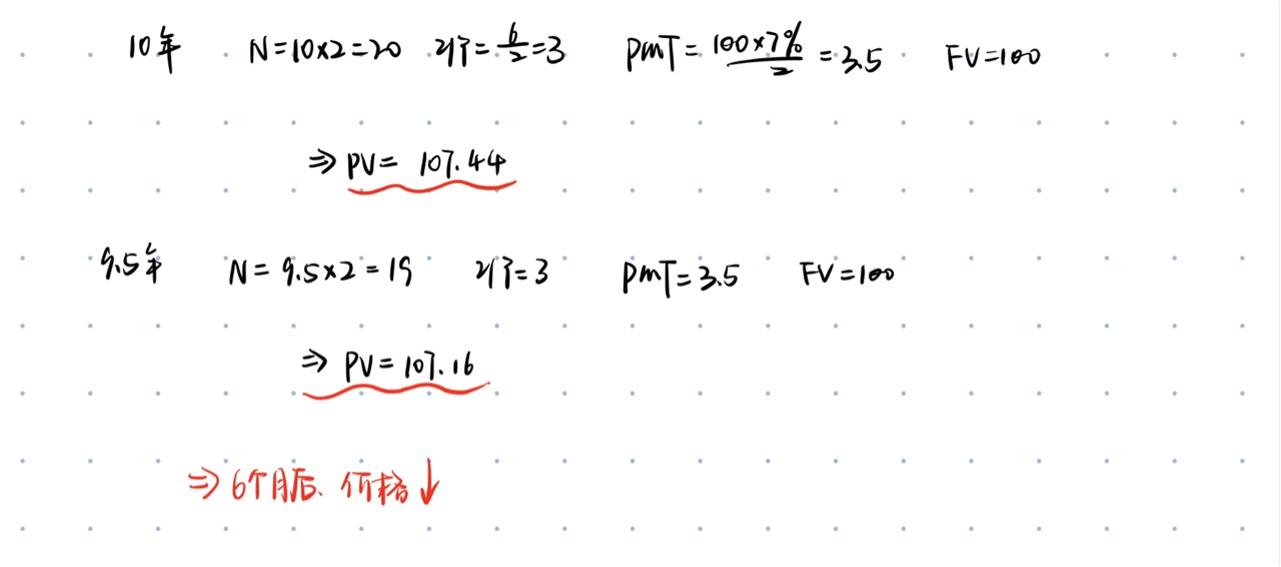 10年 N=10×2=20 I/Y=6/2=3 PMT=100×7%/2=3.5 FV=100
⇒ PV= 107.44
9.5年 N=9.5×2=19 I/Y=3 PMT=3.5 FV=100
⇒ PV=107.16
⇒ 6个月后、价格↓